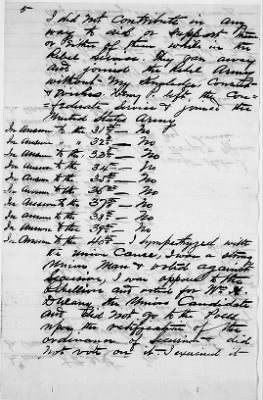 5
I did not contribute in any
way to aid or support them
or either of them while in the
Rebel Service. They ran away
and joined the Rebel Army
without my
& wishes. Henry P. left the Con-
federate service & joined the
United States Army
In Answer to the 31st — No
In Answer " " 32d — No
In Answer to the 33d — No
In Answer to the 34th — No
In Answer to the 35th — No
In Answer to the 36th — No
In Answer to the 37th — No
In answer to the 38th — No
In Answer to the 39th — No
In Answer to the 40th — I sympathyzed with
the Union Cause, I was a strong
Union Man & voted against
secession, I was opposed to the
Rebellion and voted for Wm H.
the Union Candidate
and did not go to the Polls
upon the ratification of the
ordinance of & did
not vote on it. I